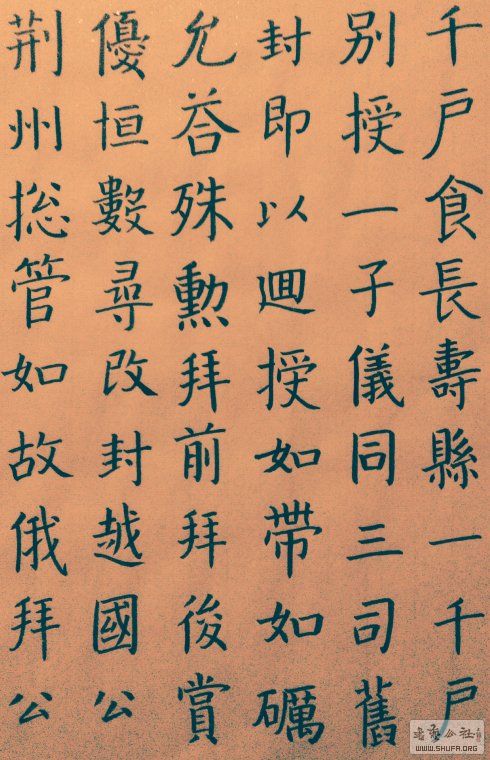 千戶食長壽縣一千戶
別授一子儀同三司舊
封即以迴授如帶如礪
允荅殊勲拜前拜後賞
優恒數尋改封越國公
荆州揔管如故俄拜公
WWW.SHUFA.ORG